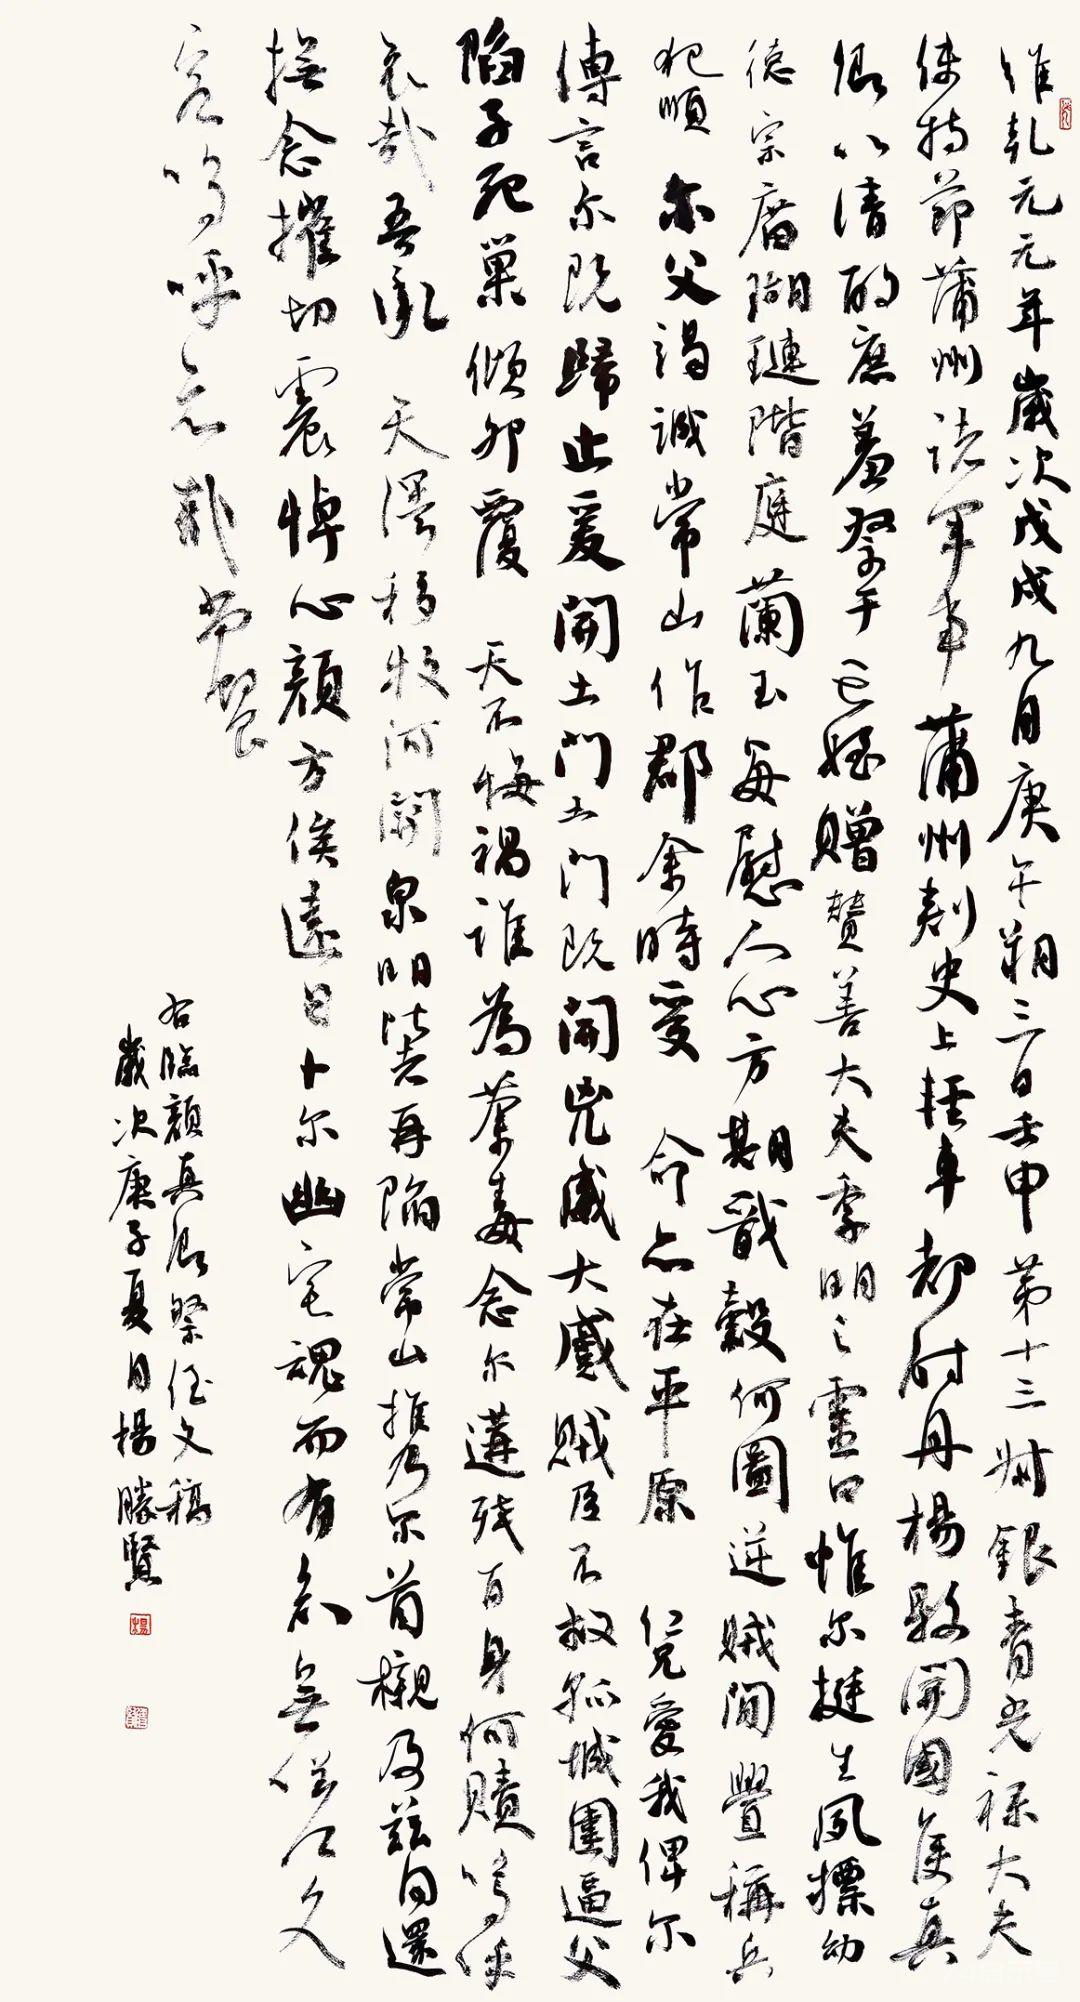 維乾元元年歲次戊戌九月庚午朔三日壬申第十三叔銀青光祿大夫
使持節蒲州諸軍事蒲州刺史上輕車都尉丹楊縣開國侯真
卿以清酌庶羞祭于亡姪贈贊善大夫季明之靈曰惟尔挺生夙標幼
德宗廟瑚璉階庭蘭玉每慰人心方期戩穀何圖逆賊間釁稱兵
犯順尔父竭誠常山作郡余時受命亦在平原仁兄愛我俾尔
傳言尔既歸止爰開土門土門既開兇威大蹙賊臣不救孤城圍逼父
陷子死巢傾卵覆天不悔禍誰為荼毒念尔遘殘百身何贖嗚呼
哀哉吾承天澤移牧河關泉明比者再陷常山携乃尔首櫬及茲同還
撫念摧切震悼心顏方俟遠日卜尔幽宅魂而有知無嗟久
客嗚呼哀哉尚饗
右臨顏真卿祭侄文稿
歲次庚子夏月楊勝賢
楊